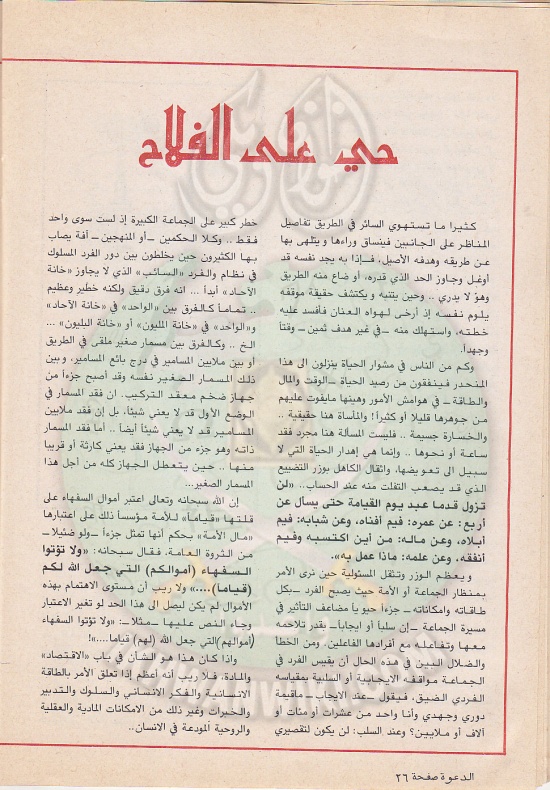 حي على الفلاح
كثيرا ما تستهوي السائر في الطريق تفاصيل
المناظر على الجانبين فينساق وراءها ويتلهى بها
عن طريقه وهدفه الأصيل، فإذا به يجد نفسه قد
أوغل وجاوز الحد الذي قدره، أو ضاع منه الطريق
وهو لا يدري .. وحين ينتبه ويكتشف حقيقة موقفه
يلوم نفسه إذ أرخى لهواه العنان فأفسد عليه
خطته، واستهلك منه ــ في غير هدف ثمين ــ وقتاً
وجهداً.
وكم من الناس في مشوار الحياة ينزلون الى هذا
المنحدر فينفقون من رصيد الحياة ــ الوقت والمال
والطاقة ــ في هوامش الأمور وهينها مايفوت عليهم
من جوهرها قليلا أو كثيرا! والمأساة هنا حقيقية ..
والخسارة جسيمة .. فليست المسألة هنا مجرد فقد
ساعة أو نحوها .. وإنما هي إهدار الحياة التي لا
سبيل الى تعويضها، واثقال الكاهل بوزر التضييع
الذي قد يصعب التفلت منه عند الحساب .. «لن
تزول قدما عبد يوم القيامة حتى يسأل عن
أربع: عن عمره: فيم أفناه، وعن شبابه: فيم
أبلاه، وعن ماله: من أين اكتسبه وفيم
أنفقه. وعن علمه: ماذا عمل به».
ويعظم الوزر وتثقل المسئولية حين نرى الأمر
بمنظار الجماعة أو الأمة حيث يصبح الفرد ــ بكل
طاقاته وامكاناته ــ جزءا حيويا مضاعف التأثير في
مسيرة الجماعة ــ إن سلبا أو ايجابا ــ بقدر تلاحمه
معها وتفاعله مع أفرادها الفاعلين. ومن الخطأ
والضلال البين في هذه الحال أن يقيس الفرد في
الجماعة مواقفه الايجابية أو السلبية بمقياسه
الفردي الضيق، فيقول ــ عند الايجاب ــ ماقيمة
دوري وجهدي وأنا واحد من عشرات أو مئات أو
آلاف أو ملايين؟ وعند السلب: لن يكون لتقصيري
خطر كبير على الجماعة الكبيرة إذ لست سوى واحد
فقط .. وكلا الحكمين ــ أو المنهجين ــ آفة يصاب
بها الكثيرون حين يخلطون بين دور الفرد المسلوك
في نظام والفرد «السائب» الذي لا يجاوز «خانة
الآحاد» أبداً ... انه فرق دقيق ولكنه خطير وعظيم
.. تماما كالفرق بين «الواحد» في «خانة الآحاد»
و«الواحد» في «خانة المليون» أو «خانة البليون» ...
الخ .. وكالفرق بين مسمار صغير ملقى في الطريق
أو بين ملايين المسامير في درج بائع المسامير، وبين
ذلك المسمار الصغير نفسه وقد أصبح جزءاً من
جهاز ضخم معقد التركيب. ان فقد المسمار في
الوضع الأول قد لا يعني شيئا، بل إن فقد ملايين
المسامير قد لا يعني شيئا أيضا .. أما فقد المسمار
ذاته وهو جزء من الجهاز فقد يعني كارثة أو قريبا
منها .. حين يتعطل الجهاز كله من أجل هذا
المسمار الصغير...
إن الله سبحانه وتعالى اعتبر أموال السفهاء على
قلتها «قياما» للأمة مؤسسا ذلك على اعتبارها
«مال الأمة» بحكم أنها تمثل جزءاً ــ ولو ضئيلا ــ
من الثروة العامة، فقال سبحانه: «ولا تؤتوا
السفهاء (أموالكم) التي جعل الله لكم
(قياما)....» ولا ريب أن مستوى الاهتمام بهذه
الأموال لم يكن ليصل الى هذا الحد لو تغير الاعتبار
وجاء النص عليها ــ مثلا ــ: «ولا تؤتوا السفهاء
(أموالهم)التي جعل الله (لهم) قياما....»!
واذا كان هذا هو الشأن في باب «الاقتصاد»
والمادة، فلا ريب أنه أعظم إذا تعلق الأمر بالطاقة
الانسانية والفكر الانساني والسلوك والتدبير
والخبرات وغير ذلك من الامكانات المادية والعقلية
والروحية المودعة في الانسان..
الدعوة صفحة ٢٦